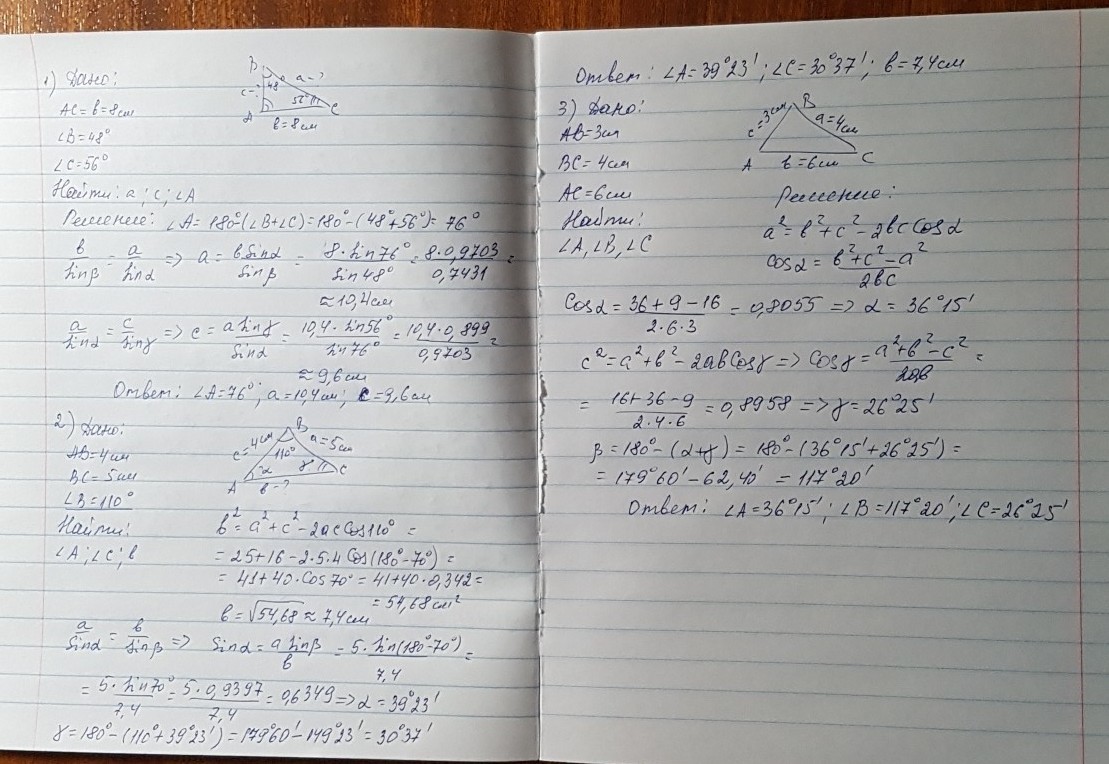 1) Дано:
AC = b = 8см
∠B = 48°
∠C = 56°
B
48
a - ?
c - ?
56°
A
C
b = 8см
Найти: a; c; ∠A
Решение: ∠A = 180° - (∠B + ∠C) = 180° - (48° + 56°) = 76°
b/sinβ = a/sinα => a = b sinα/sinβ = 8·sin76°/sin48° = 8·0,9703/0,7431 =
≈ 10,4см
a/sinα = c/sinγ => c = a sinγ/sinα = 10,4·sin56°/sin76° = 10,4·0,829/0,9703 =
≈ 9,6см
Ответ: ∠A = 76°; a = 10,4см; c = 9,6см
2) Дано:
AB = 4см
BC = 5см
∠B = 110°
B
c = 4см
110°
a = 5см
α
γ
A
C
b - ?
Найти:
∠A; ∠C; b
b² = a² + c² - 2ac Cos110° =
= 25 + 16 - 2·5·4 Cos(180° - 70°) =
= 41 + 40·Cos70° = 41 + 40·0,342 =
= 54,68 см²
b = √54,68 ≈ 7,4см
a/sinα = b/sinβ => Sinα = a sinβ/b = 5·sin(180° - 70°)/7,4 =
= 5·sin70°/7,4 = 5·0,9397/7,4 = 0,6349 => α = 39°23'
γ = 180° - (110° + 39°23') = 179°60' - 149°23' = 30°37'
Ответ: ∠A = 39°23'; ∠C = 30°37'; b = 7,4см
3) Дано:
AB = 3см
BC = 4см
AC = 6см
B
c = 3см
a = 4см
A
b = 6см
C
Найти:
∠A, ∠B, ∠C
Решение:
a² = b² + c² - 2bc Cosα
Cosα = b² + c² - a²/2bc
Cosα = 36 + 9 - 16/2·6·3 = 0,8055 => α = 36°15'
c² = a² + b² - 2ab Cosγ => Cosγ = a² + b² - c²/2ab =
= 16 + 36 - 9/2·4·6 = 0,8958 => γ = 26°25'
β = 180° - (α + γ) = 180° - (36°15' + 26°25') =
= 179°60' - 62,40' = 117°20'
Ответ: ∠A = 36°15'; ∠B = 117°20'; ∠C = 26°25'